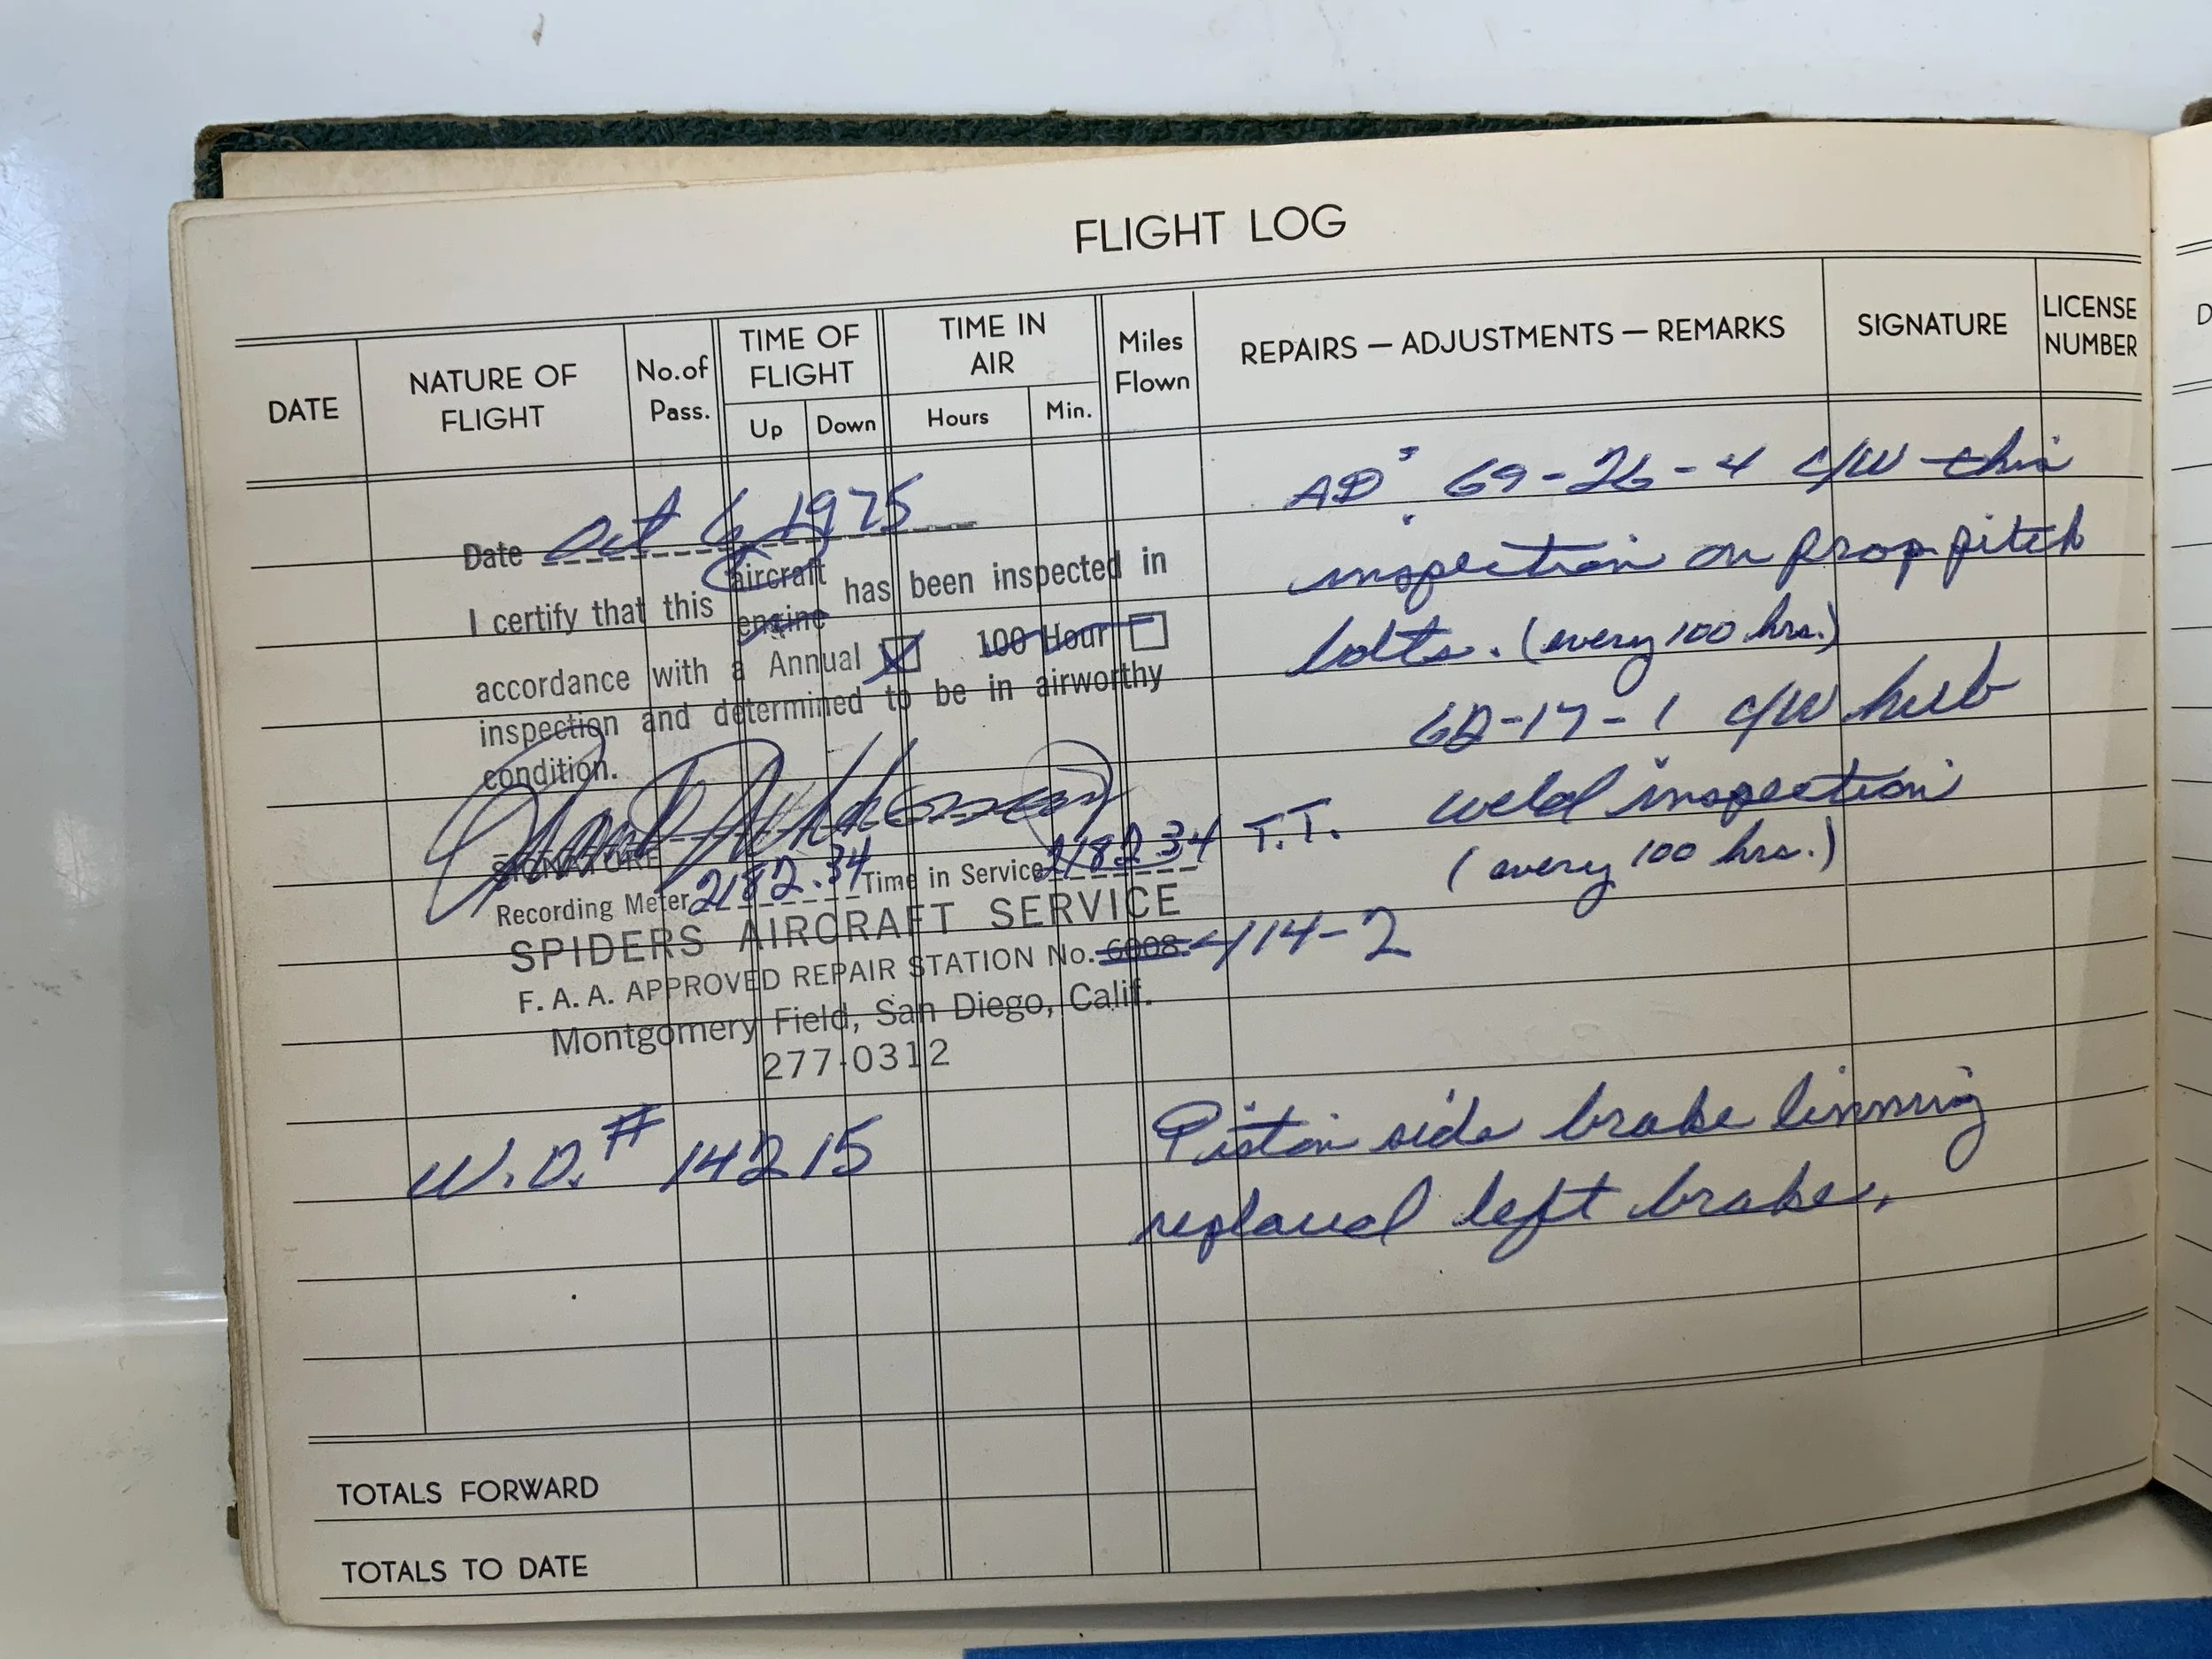 FLIGHT LOG
DATE
NATURE OF
FLIGHT
No.of
Pass.
TIME OF
FLIGHT
Up Down
TIME IN
AIR
Hours Min.
Miles
Flown
REPAIRS — ADJUSTMENTS — REMARKS
SIGNATURE
LICENSE
NUMBER
Date Oct 6, 1975
aircraft
I certify that this engine has been inspected in
accordance with a Annual 100 Hour
inspection and determined to be in airworthy
condition.
SIGNATURE
Recording Meter 2182.34 Time in Service 2182.34 T.T.
SPIDERS AIRCRAFT SERVICE
F. A. A. APPROVED REPAIR STATION No. 6008 114-2
Montgomery Field, San Diego, Calif.
277-0312
W.O.# 14215
AD's 69-26-4 c/w this
inspection on prop pitch
bolts. (every 100 hrs.)
62-17-1 c/w hub
weld inspection
(every 100 hrs.)
Piston side brake linning
replaced left brake.
TOTALS FORWARD
TOTALS TO DATE
D